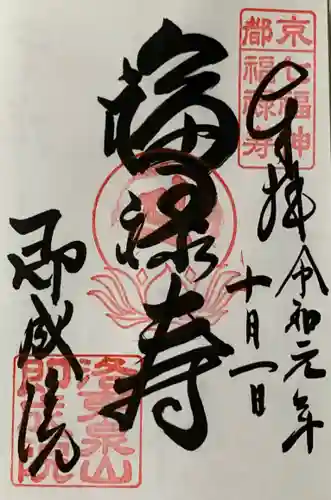 京都
七福神
福禄寿
奉拝
令和元年
十月一日
福禄寿
即成院
洛東泉山
即成院